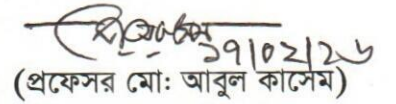 ১৭/০২/২৬
(প্রফেসর মো: আবুল কাসেম)